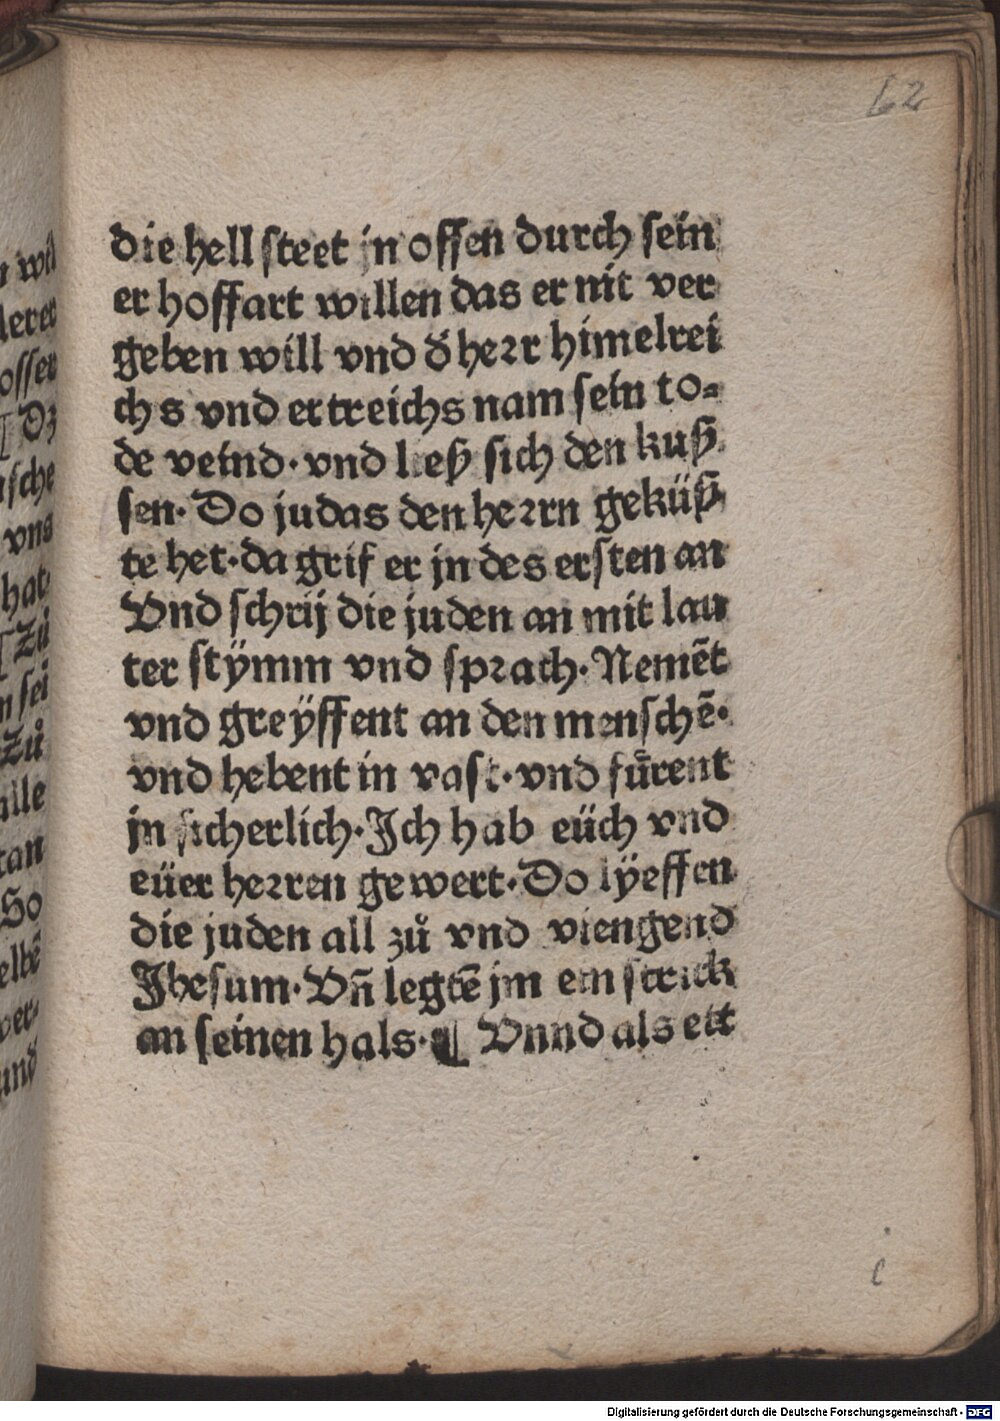 62
die hell steet jn offen durch sein
er hoffart willen das er nit ver
geben will vnd d̄ herr himelrei
chs vnd ertreichs nam sein to⸗
de veind· vnd ließ sich den kuß
sen· Do judas den herrn geküß
te het· da grif er jn des ersten an
Vnd schrij die juden an mit lau
ter stÿmm vnd sprach· Nemēt
vnd greÿffent an den menschē·
vnd hebent in vast· vnd fuͤrent
jn sicherlich· Ich hab eüch vnd
eüer herren gewert· Do lÿeffen
die juden all zuͦ vnd viengend
Jhesum· Vn̄ legtē jm ein strick
an seinen hals· ¶ Vnnd als ett
Digitalisierung gefördert durch die Deutsche Forschungsgemeinschaft - DFG